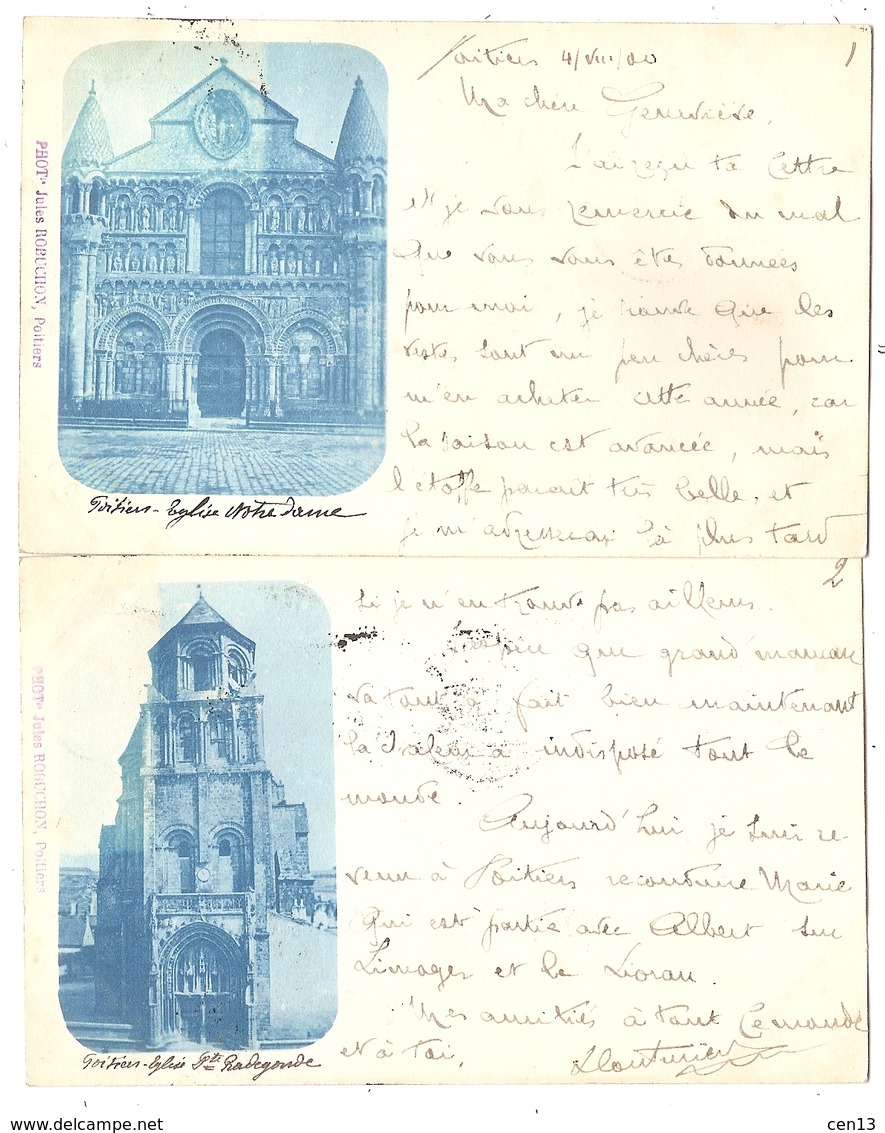 PHOT^ie Jules ROBUCHON, Poitiers
Poitiers 4/VIII/00
1
Ma chère Geneviève,
J'ai reçu ta lettre
et je vous remercie du mal
que vous vous êtes données
pour moi, je trouve que les
vestes sont un peu chères pour
m'en acheter cette année, car
la saison est avancée, mais
l'étoffe parait très belle. et
je m'adresserai là plus tard
Poitiers - Eglise Notre Dame
2
PHOT^ie Jules ROBUCHON, Poitiers
si je n'en trouve pas ailleurs.
que grand'maman
va tout à fait bien maintenant
la chaleur a indisposé tout le
monde.
Aujourd'hui je suis re-
venu à Poitiers reconduire Marie
qui est partie avec Albert sur
Limoges et le Lioran
Mes amitiés à tout le monde
et à toi.
Poitiers - Eglise S^te Radegonde
Delcampe.net
cen13